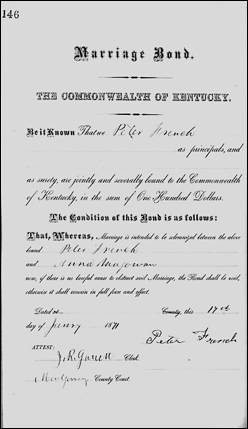 146
Marriage Bond.
THE COMMONWEALTH OF KENTUCKY.
Be it Known That we Peter French
as principals, and
as surety, are jointly and severally bound to the Commonwealth
of Kentucky, in the sum of One Hundred Dollars.
The Condition of this Bond is as follows:
That, Whereas, Marriage is intended to be solemnized between the above
bound Peter French
and Anna Magowan
now, if there is no lawful cause to obstruct said Marriage, this Bond shall be void,
otherwise it shall remain in full force and effect.
Dated at County, this 17th
day of Jany 1871
Peter French
ATTEST:
J. R. Garrett Clerk
Montgomery County Court.